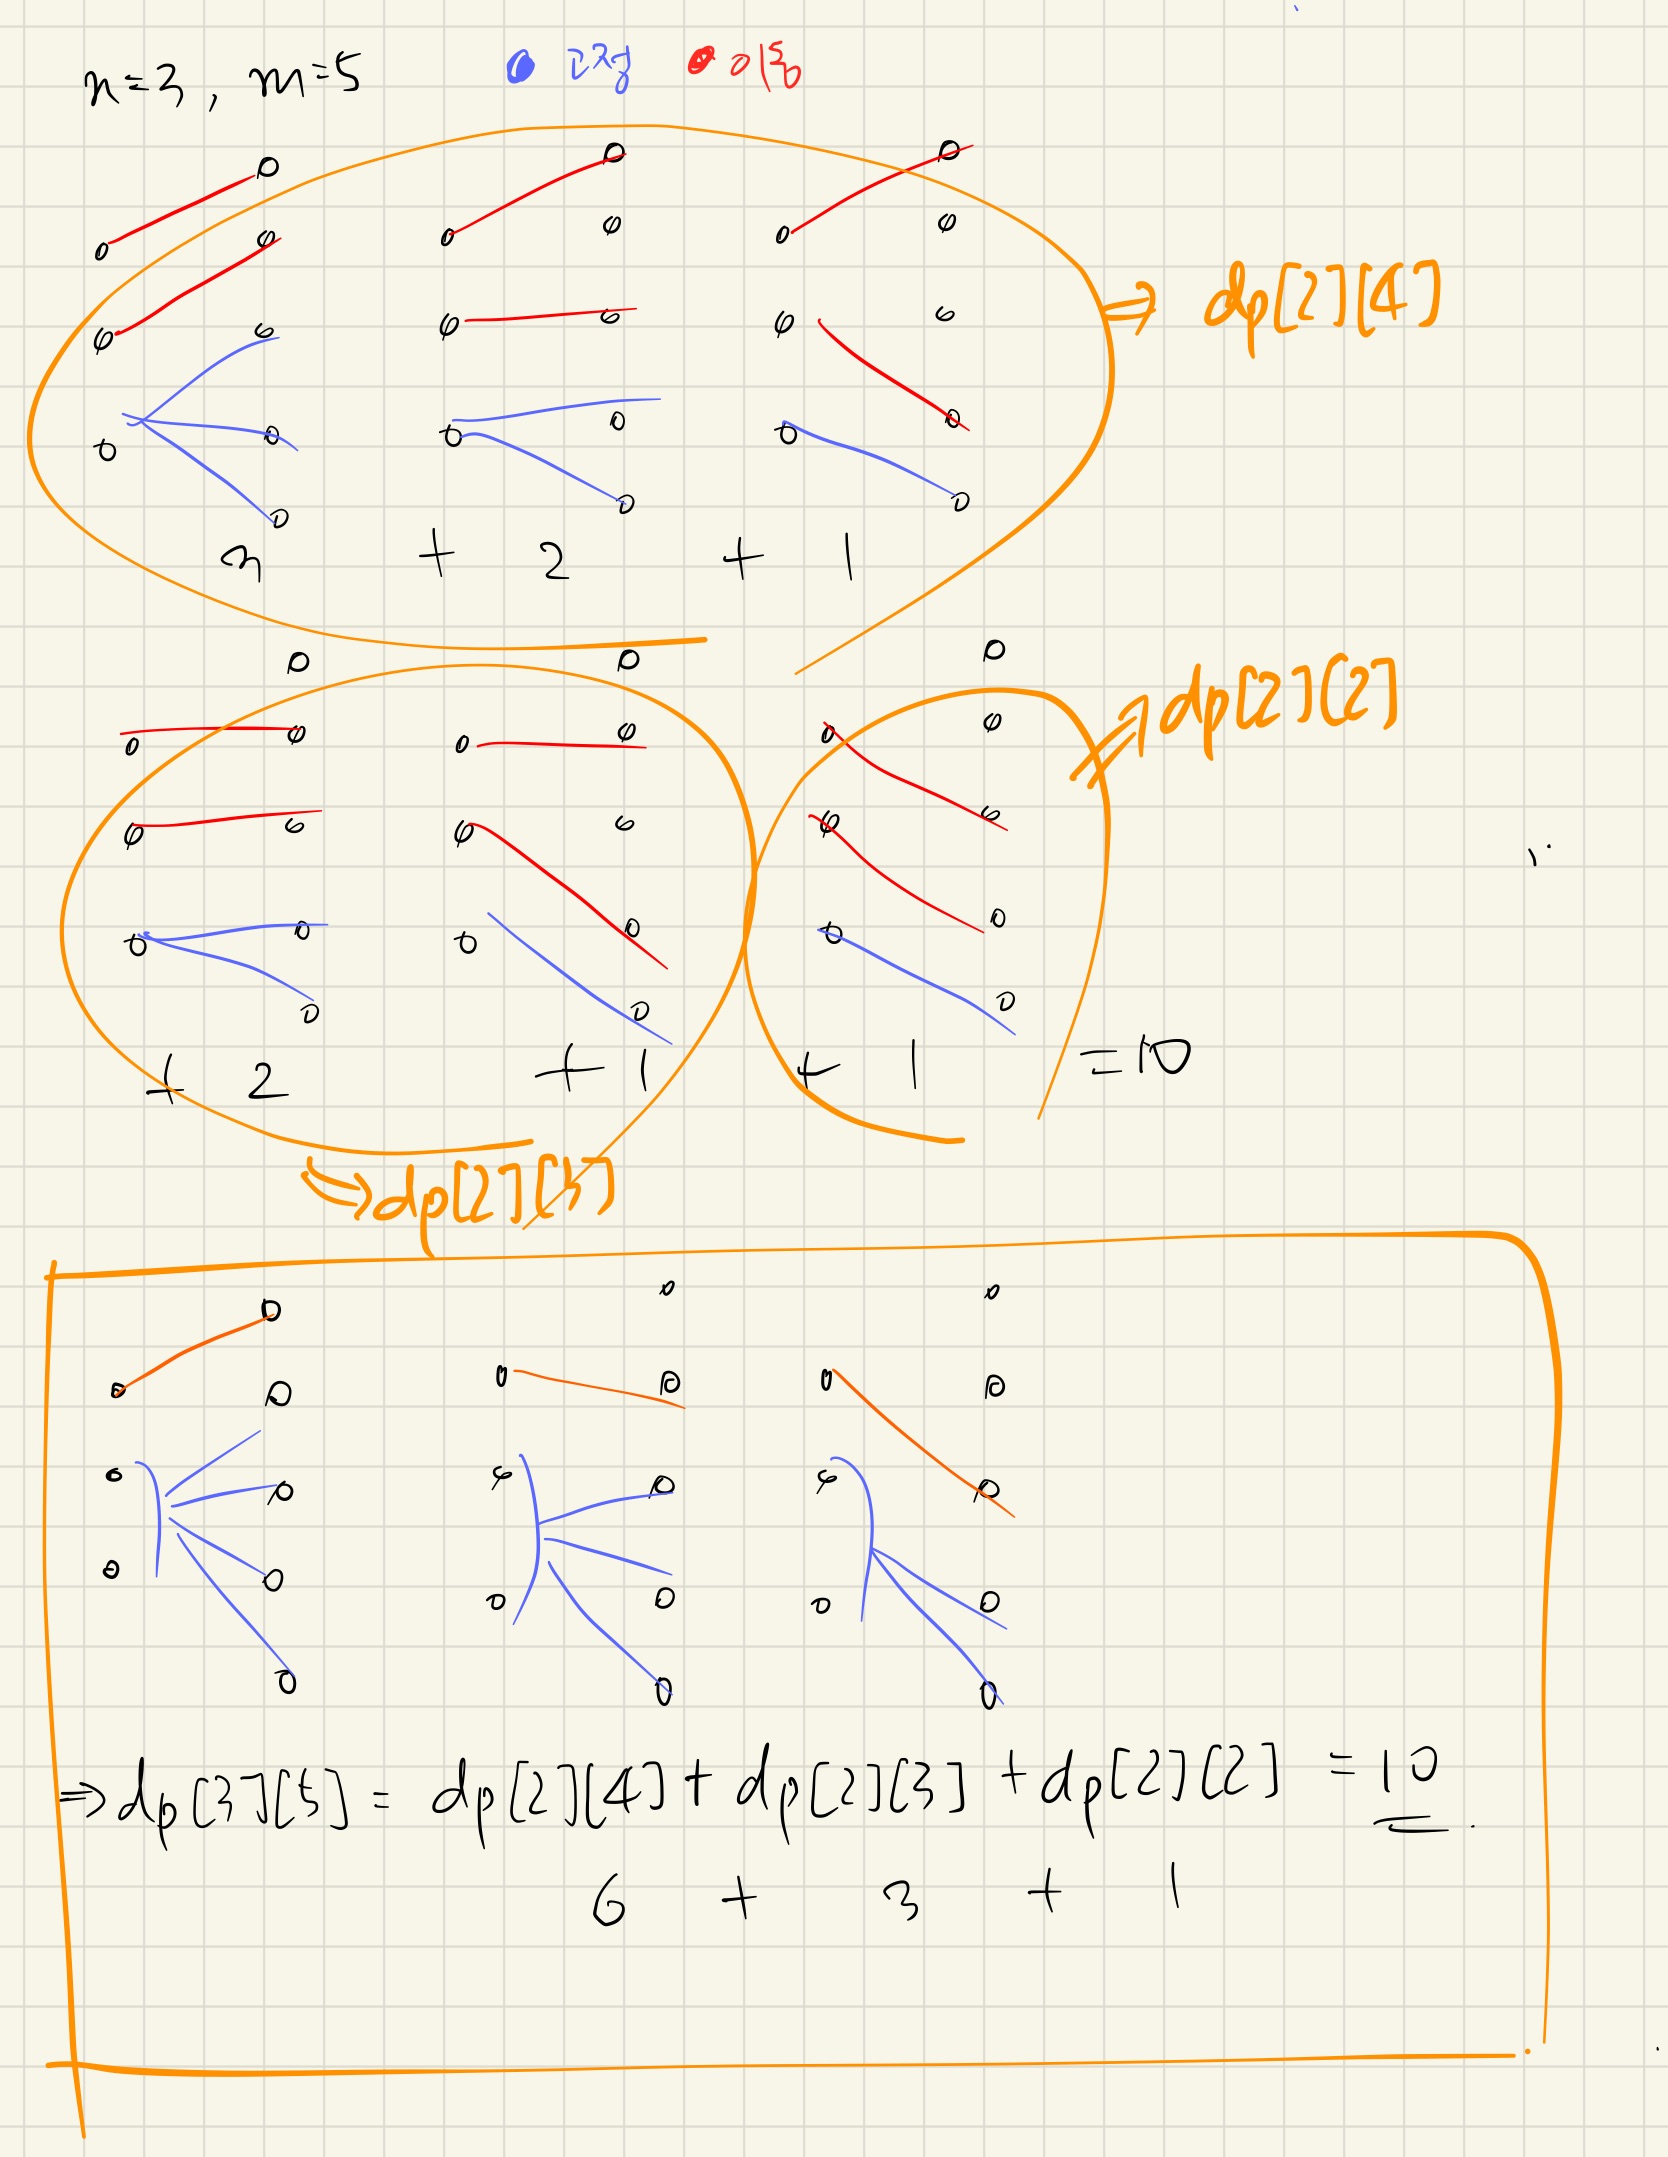 n=3, m=5
⇒ dp[2][4]
3 + 2 + 1
⇒ dp[2][2]
+ 2 + 1 + 1 =10
⇒ dp[2][3]
⇒ dp[3][5] = dp[2][4] + dp[2][3] + dp[2][2] = 10
6 + 3 + 1